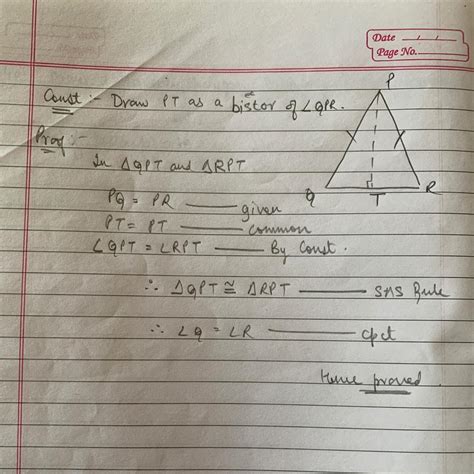 Date / /
Page No.
Const :- Draw PT as a bistor of ∠QPR.
Proof :-
In ΔQPT and ΔRPT
PQ = PR — given
PT = PT — common
∠QPT = ∠RPT — By Const.
∴ ΔQPT ≅ ΔRPT — SAS Rule
∴ ∠Q = ∠R — cpct
Hence proved.
P
Q
T
R